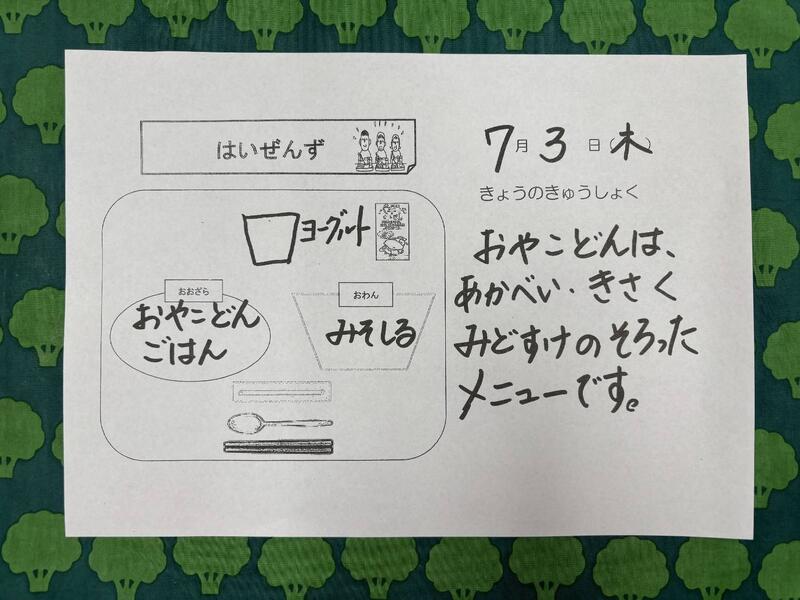 はいぜんず
ヨーグルト
おおざら
おやこどん
ごはん
おわん
みそしる
7月3日(木)
きょうのきゅうしょく
おやこどんは、
あかべい・きさく
みどすけのそろった
メニューです。